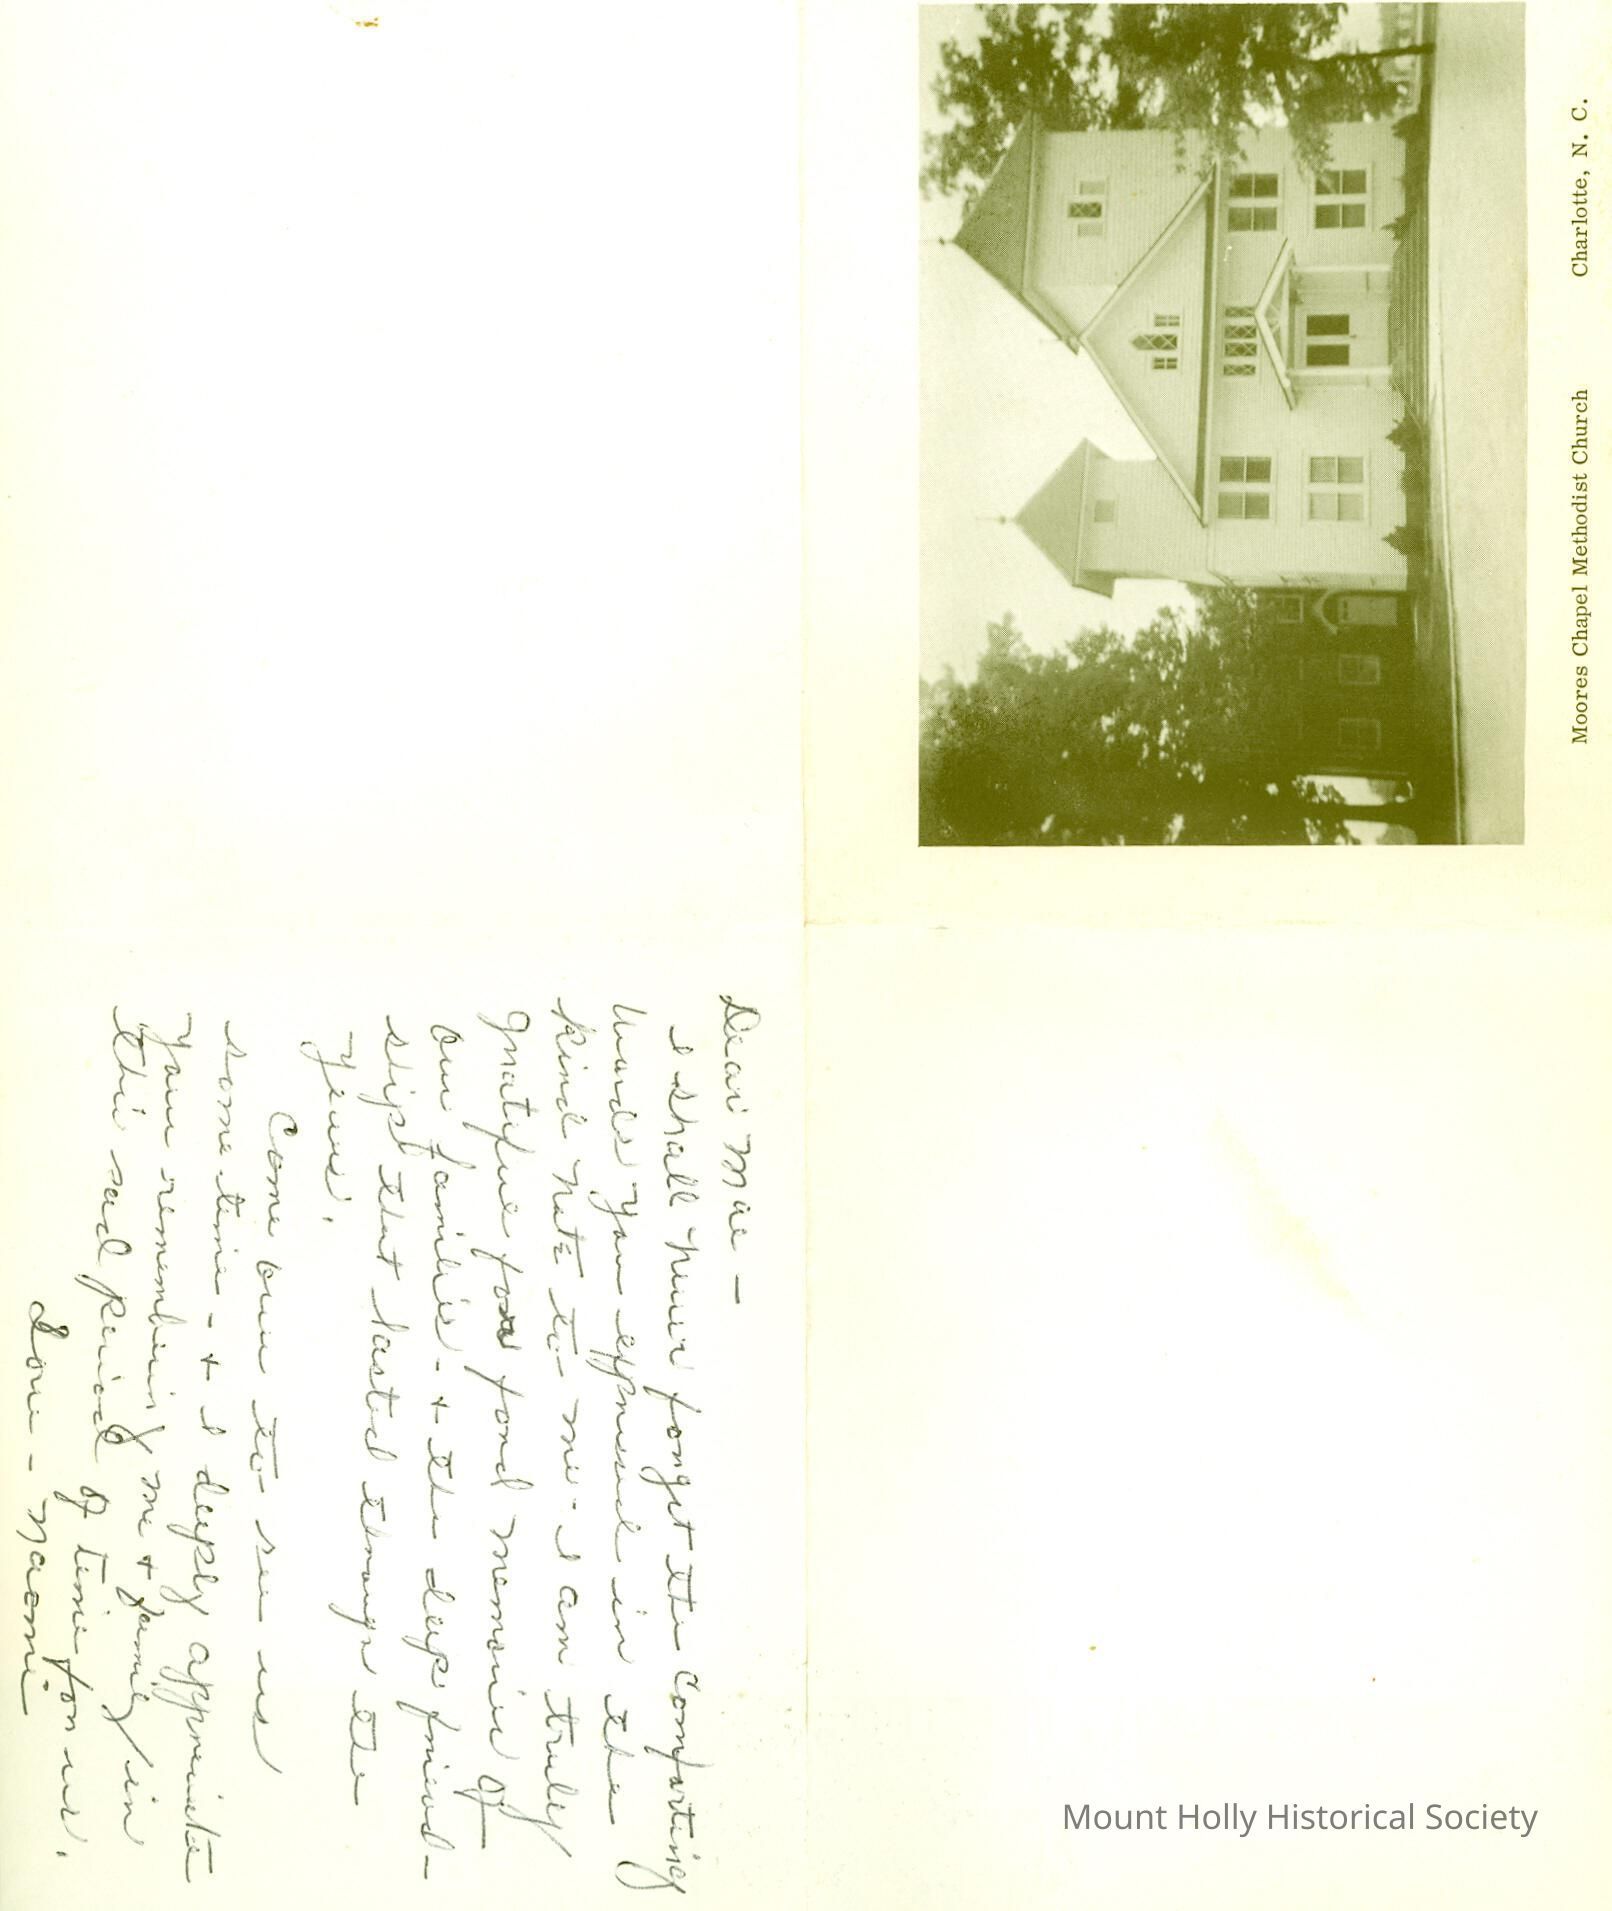 Moores Chapel Methodist Church Charlotte, N. C.
Dear Mae -
I shall never forget the comforting
words you expressed in the
kind note to me - I am truly
grateful for fond memories of
our families - & the deep friend-
ship that lasted through the
years.
Come over to see us
some time - & I deeply appreciate
your remembering me & family in
this sad period of time for us.
Love - Naomi
Mount Holly Historical Society